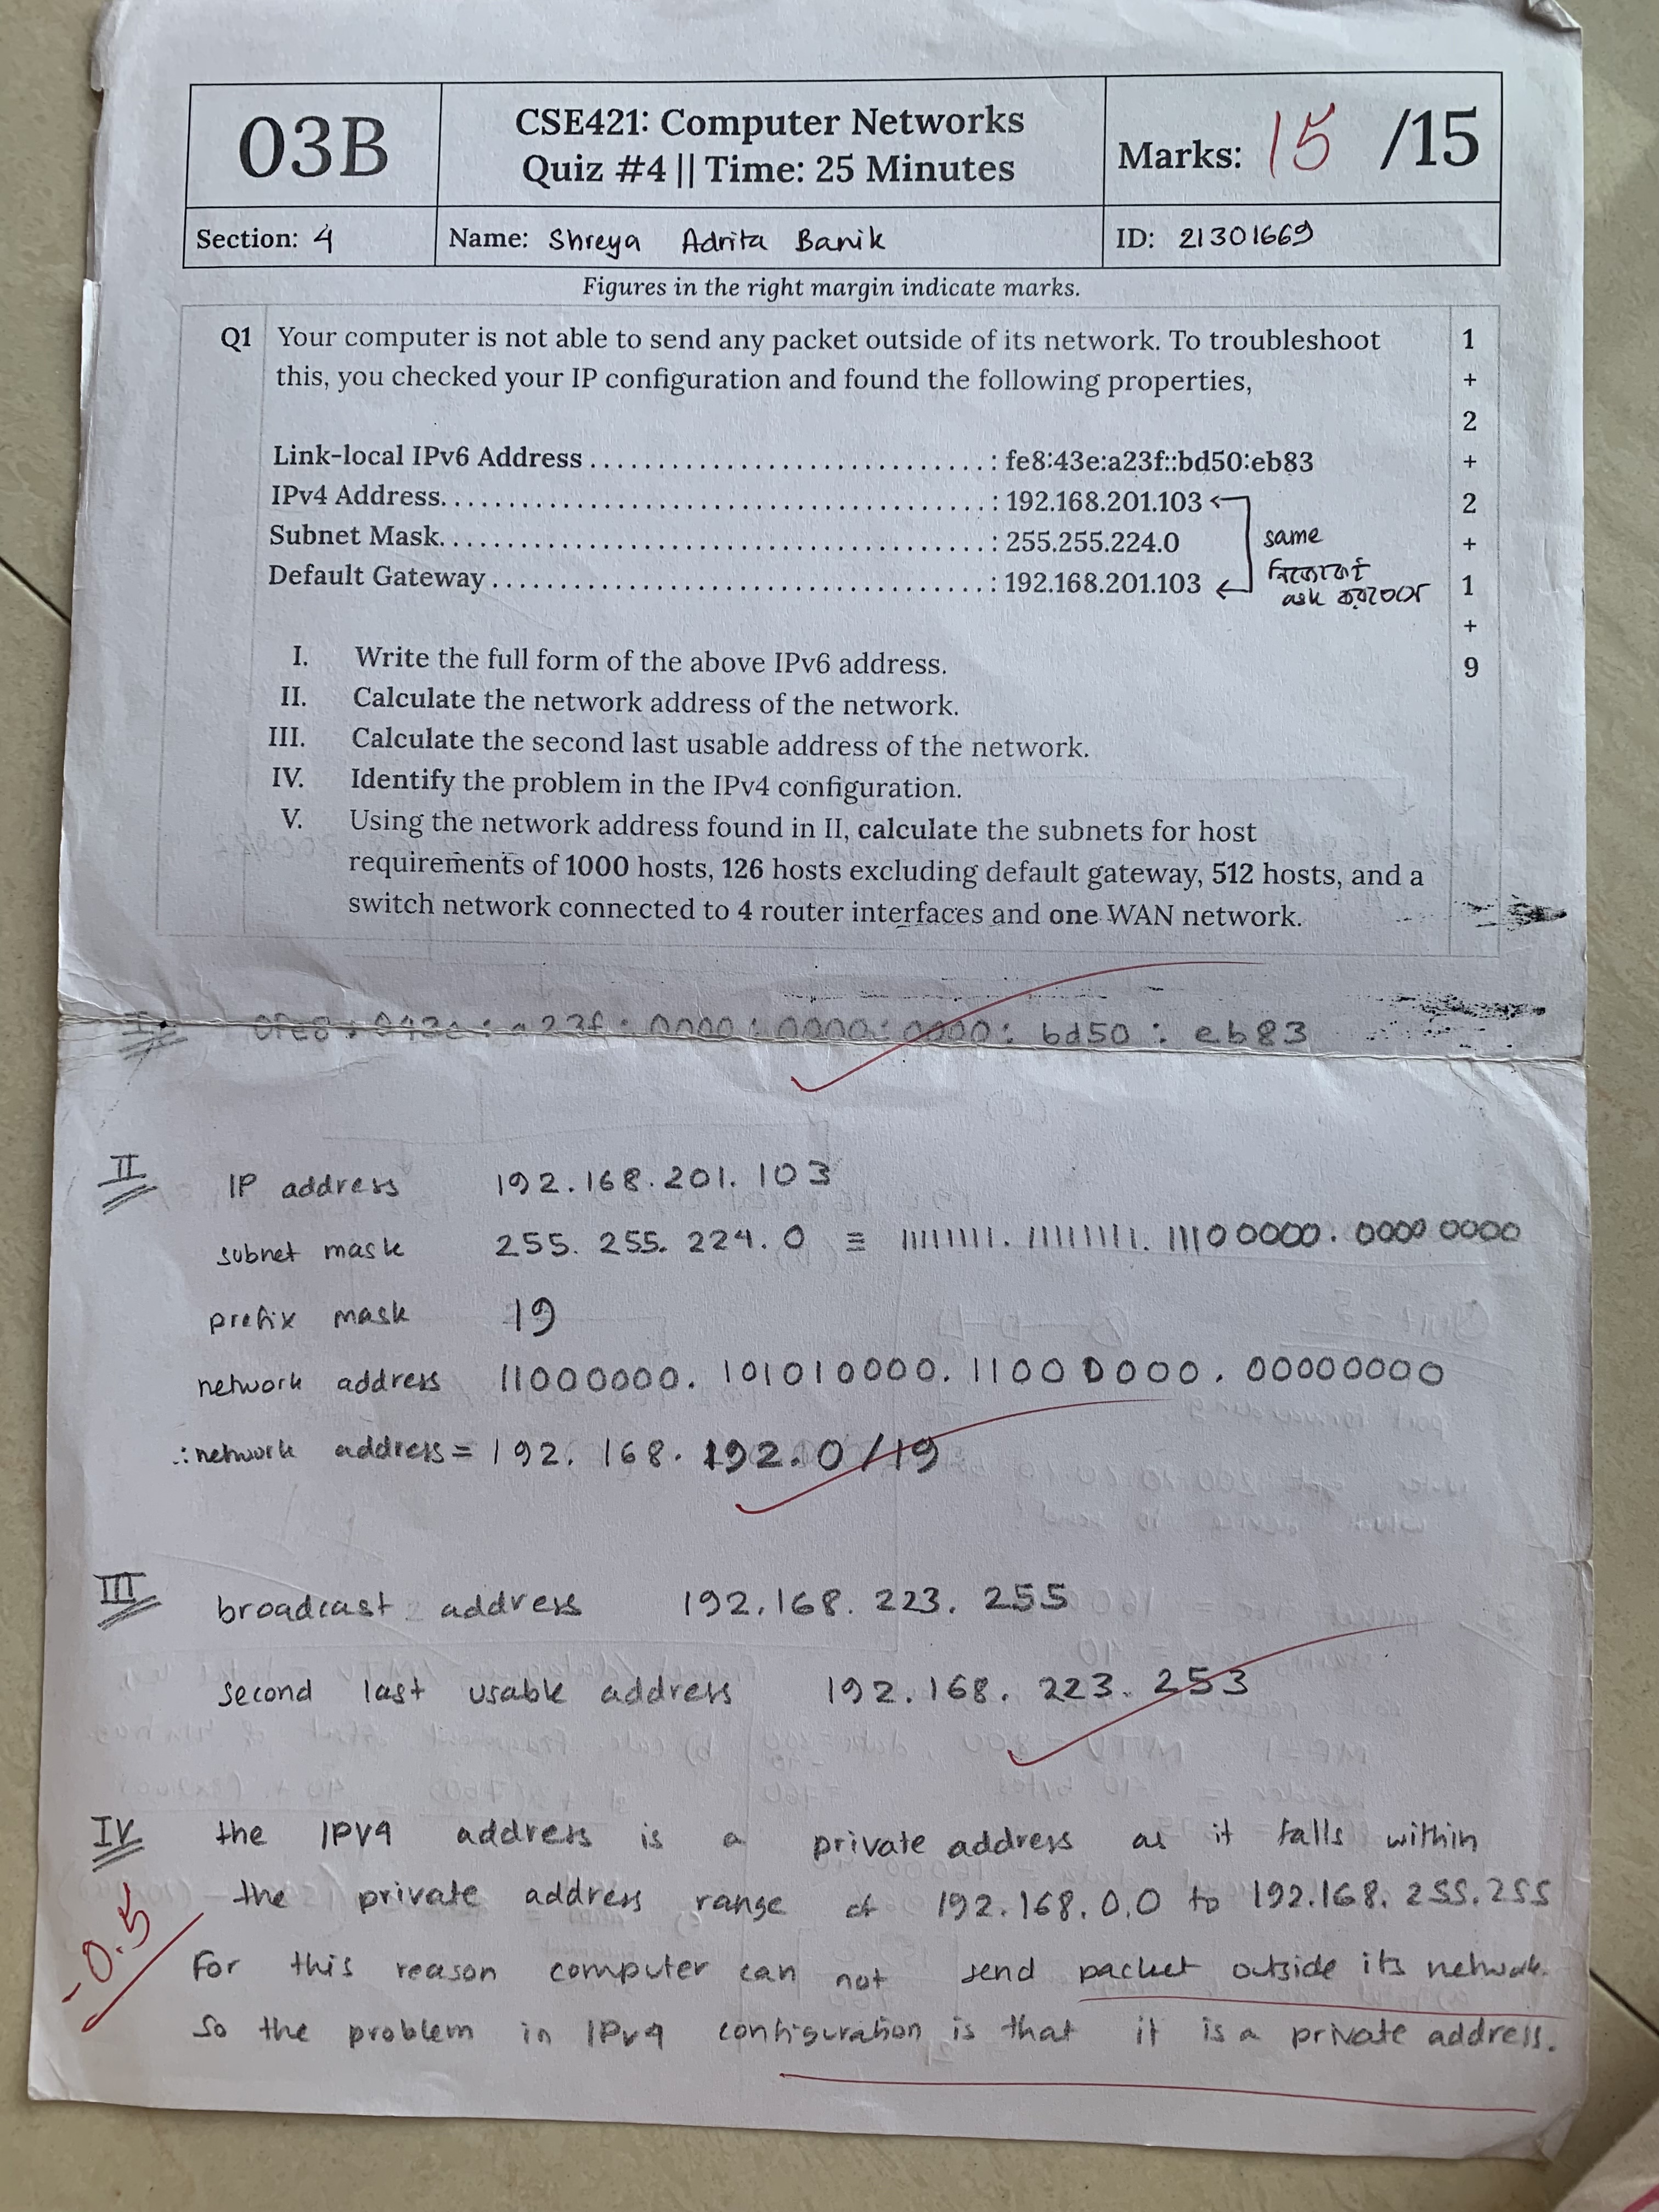 03B
CSE421: Computer Networks
Quiz #4 || Time: 25 Minutes
Marks: 15 /15
Section: 4
Name: Shreya Adrita Banik
ID: 21301669
Figures in the right margin indicate marks.
Q1 Your computer is not able to send any packet outside of its network. To troubleshoot
this, you checked your IP configuration and found the following properties,
1
+
2
+
2
+
1
+
9
Link-local IPv6 Address ............................... : fe8:43e:a23f::bd50:eb83
IPv4 Address. ......................................... : 192.168.201.103
Subnet Mask. .......................................... : 255.255.224.0
Default Gateway ....................................... : 192.168.201.103
same
নিজেকেই
ask করতেছে
I. Write the full form of the above IPv6 address.
II. Calculate the network address of the network.
III. Calculate the second last usable address of the network.
IV. Identify the problem in the IPv4 configuration.
V. Using the network address found in II, calculate the subnets for host
requirements of 1000 hosts, 126 hosts excluding default gateway, 512 hosts, and a
switch network connected to 4 router interfaces and one WAN network.
I 0fe8 : 043e : a23f : 0000 : 0000 : 0000 : bd50 : eb83
II IP address 192.168.201.103
subnet mask 255.255.224.0 ≡ 11111111.11111111.11100000.00000000
prefix mask 19
network address 11000000.101010000.11000000.00000000
∴ network address = 192.168.192.0/19
III broadcast address 192.168.223.255
second last usable address 192.168.223.253
IV the IPV4 address is a private address as it falls within
the private address range of 192.168.0.0 to 192.168.255.255
-0.5
For this reason computer can not send packet outside its network.
So the problem in IPv4 configuration is that it is a private address.